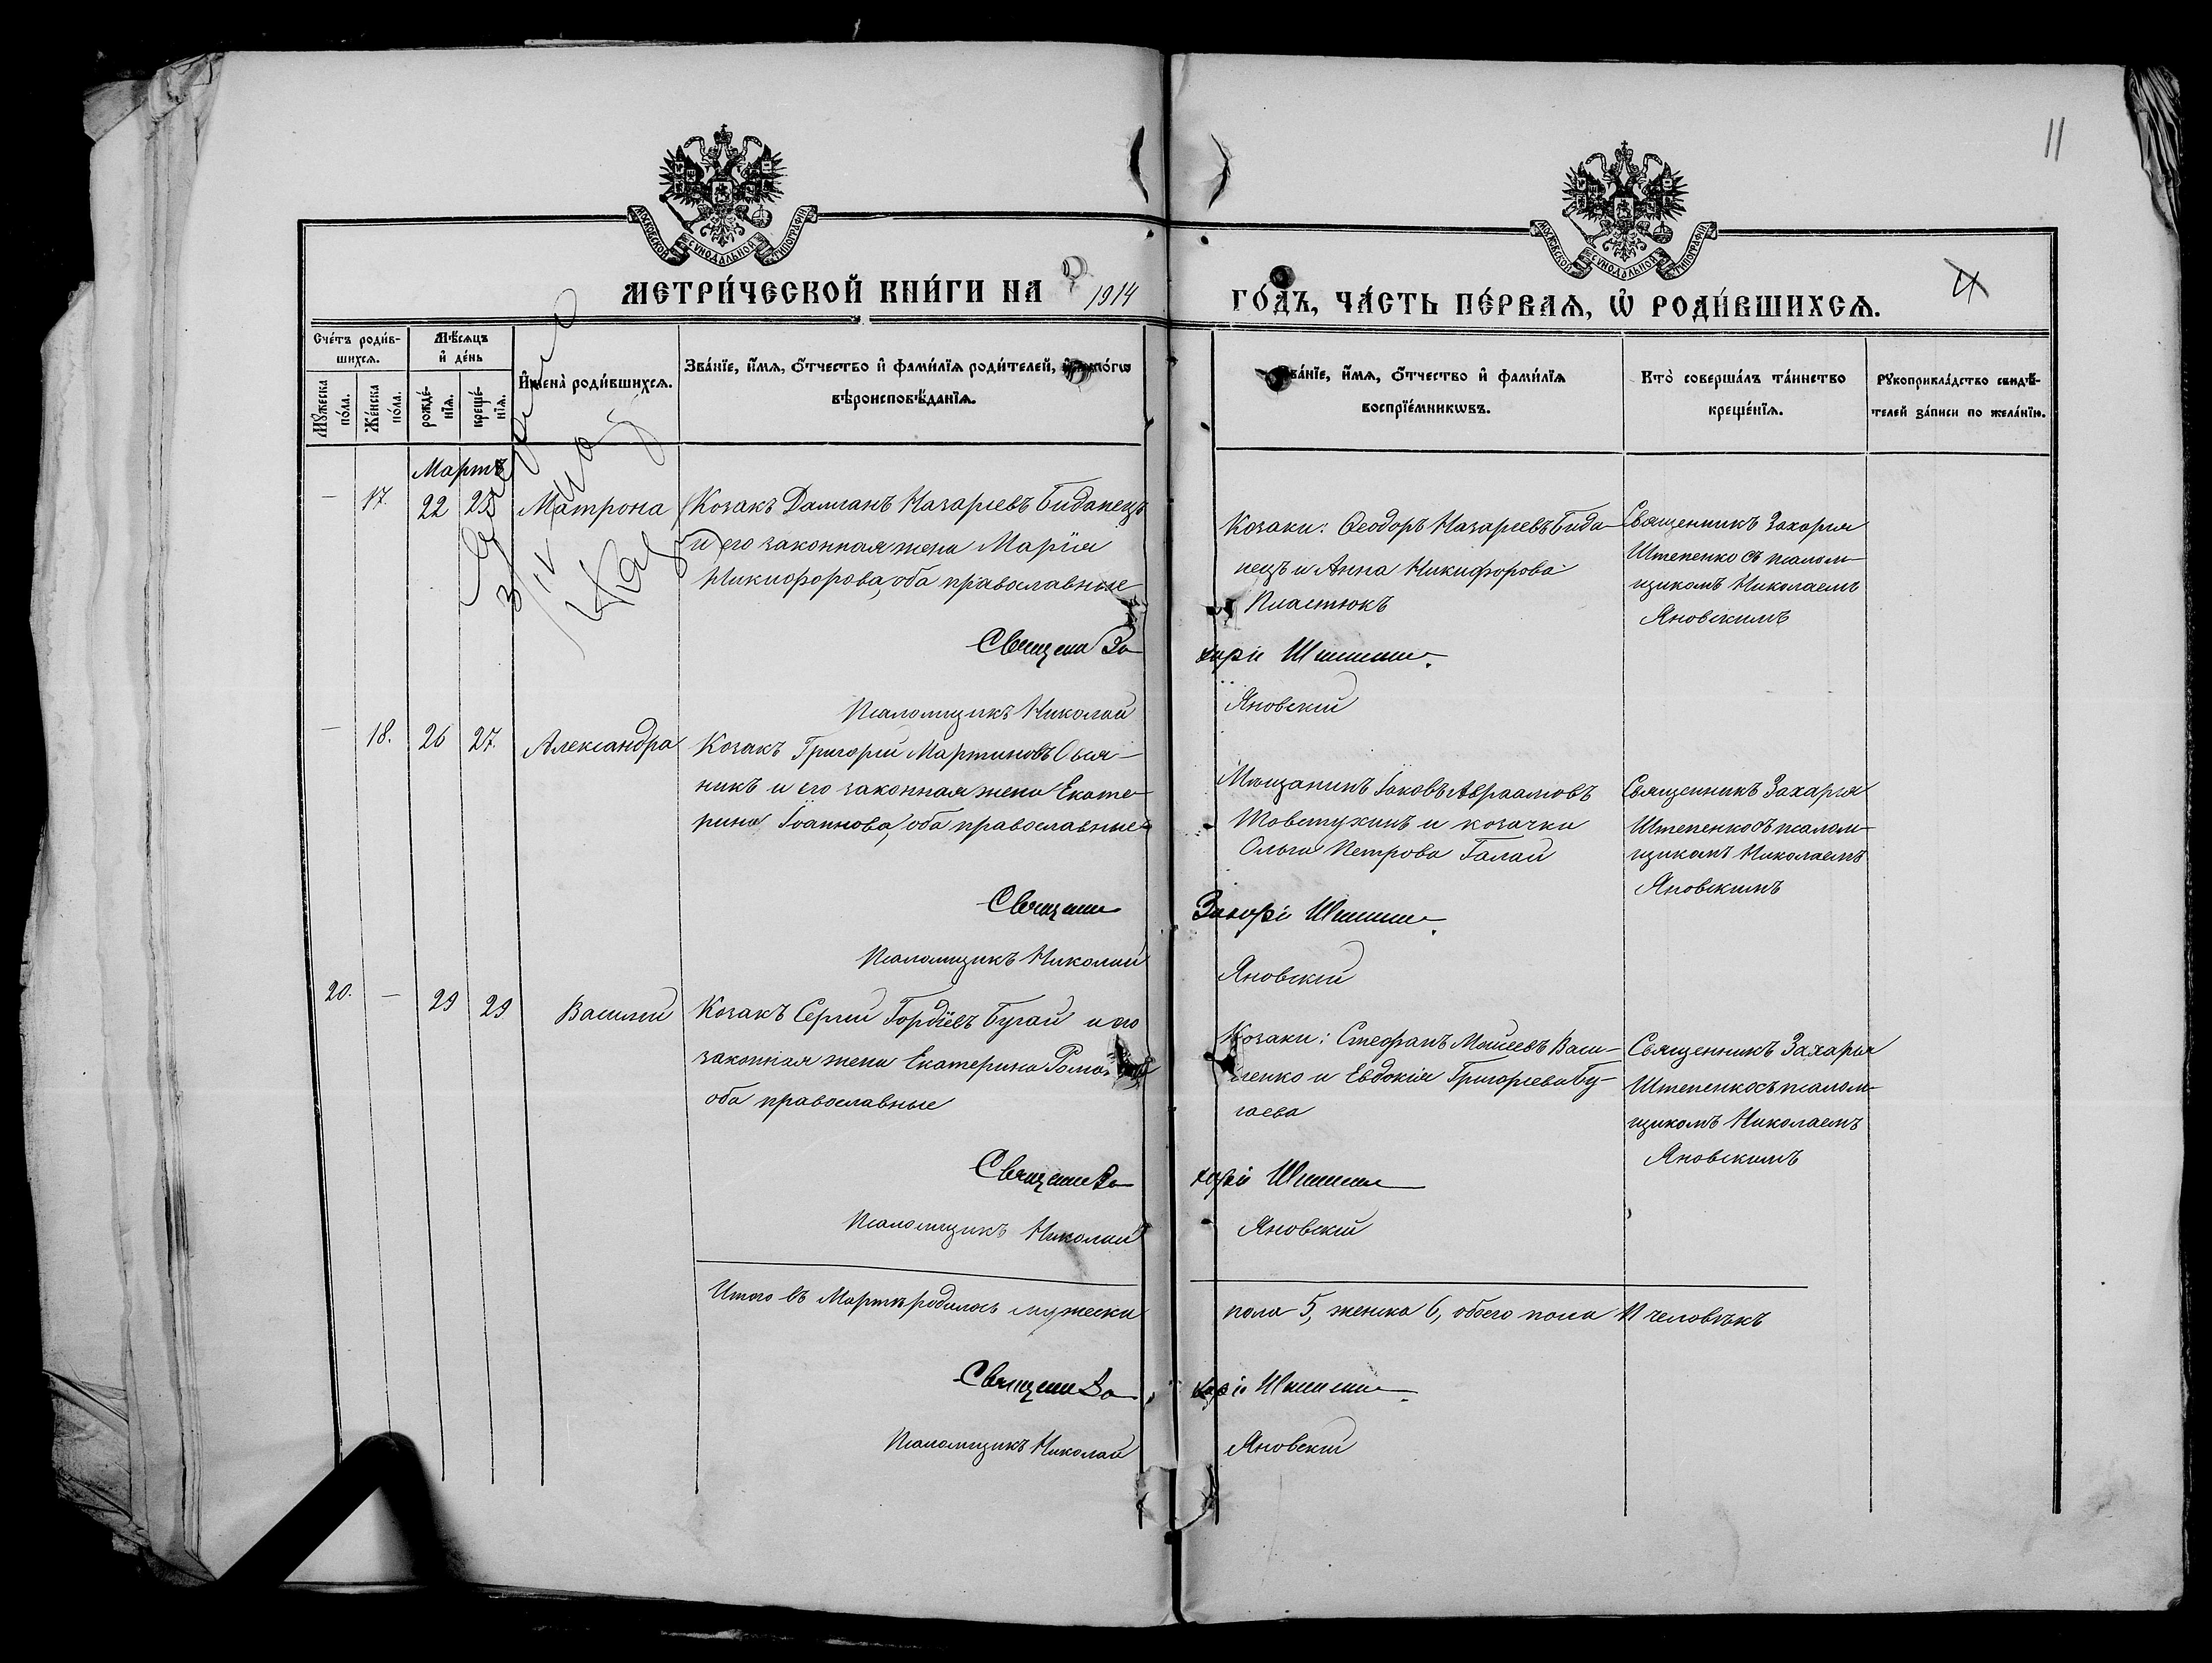 11
МОСКОВСКОЙ СѴНОДАЛЬНОЙ ТИПОГРАФІИ
МОСКОВСКОЙ СѴНОДАЛЬНОЙ ТИПОГРАФІИ
МЕТРИ́ЧЕСКОЙ КНИ́ГИ НА 1914 ГО́ДЪ, ЧА́СТЬ ПЕ́РВАѦ, Ѡ҆ РОДИ́ВШИХСѦ.
4
Сче́тъ роди́в-
шихсѧ.
Мꙋ́жеска по́ла.
Же́нска по́ла.
Мѣ́сѧцъ
и҆ де́нь
рожде́-
нїѧ.
креще́-
нїѧ.
И҆мена̀ роди́вшихсѧ.
Зва́нїе, и҆́мѧ, ѻ҆́тчество и҆ фами́лїѧ роди́телей,
вѣроисповѣ́данїѧ.
и҆́мѧ, ѻ҆́тчество и҆ фами́лїѧ
воспрїе́мникѡвъ.
Кто̀ соверша́лъ та́инство
креще́нїѧ.
Рꙋкоприкла́дство свидѣ́-
телей за́писи по жела́нїю.
Мартъ
— 17. 22 23 Матрона Козакъ Дамианъ Назарiевъ Биданецъ
и его законная жена Марiя
Никифорова, оба православные
Козаки: Ѳеодоръ Назарiевъ Бида-
нецъ и Анна Никифорова
Пластюкъ
Священникъ Захарiя
Штепенко съ псалом-
щикомъ Николаемъ
Яновскимъ
Священ За харiя
Псаломщикъ Николай Яновскiй
— 18. 26 27. Александра Козакъ Григорiй Мартиновъ Овся-
никъ и его законная жена Екате-
рина Iоаннова, оба православные
Мѣщанинъ Iаковъ Авраамовъ
Товстухинъ и козачка
Ольга Петрова Галай
Священникъ Захарiя
Штепенко съ псалом-
щикомъ Николаемъ
Яновскимъ
Священ Захарi
Псаломщикъ Николай Яновскiй
20. — 29 29 Василiй Козакъ Сергiй Гордiевъ Бугай и его
законная жена Екатерина
оба православные
Козаки: Стефанъ Мойсеевъ Васи-
ленко и Евдокiя Григорiева Бу-
гаева
Священникъ Захарiя
Штепенко съ псалом-
щикомъ Николаемъ
Яновскимъ
Священ За харiя
Псаломщикъ Николай Яновскiй
Итого въ Мартѣ родилось мужеска пола 5, женска 6, обоего пола 11 человѣкъ
Священ За харiя
Псаломщикъ Николай Яновскiй